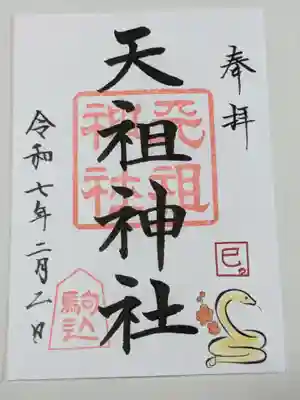 奉拝
天祖神社
天祖
神社
巳
駒込
令和七年二月二日